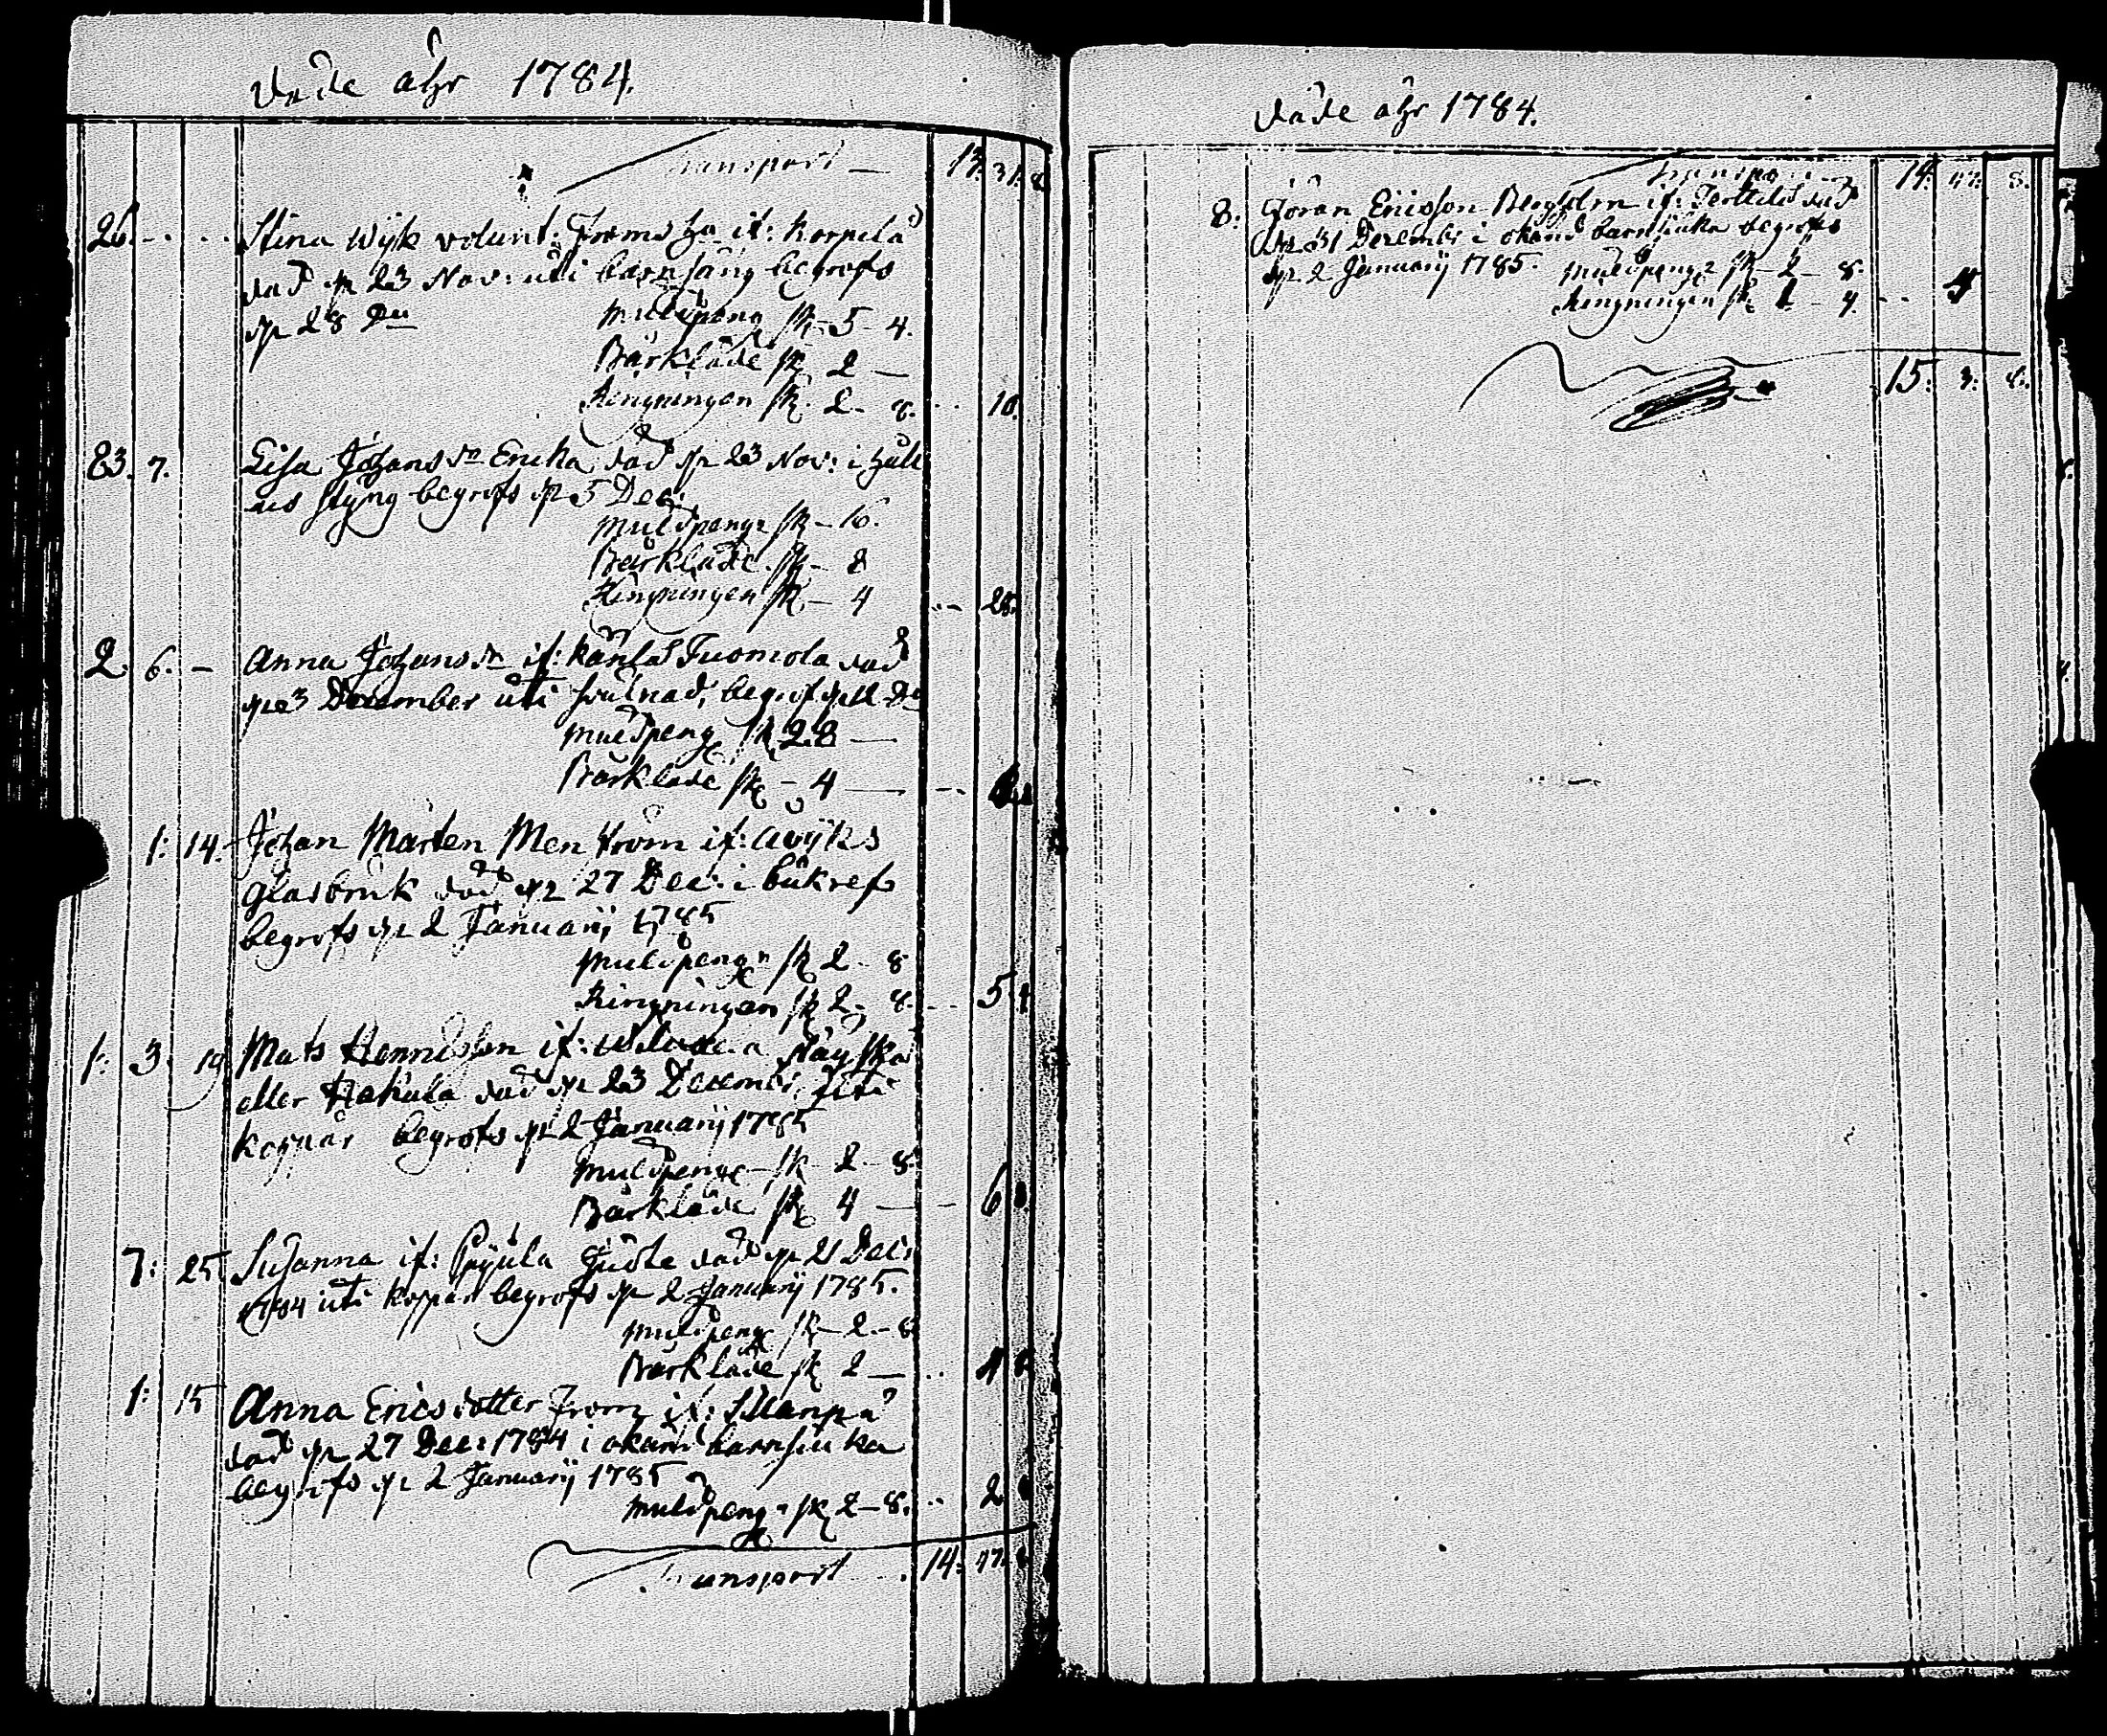 Döde åhr 1784.
Transport — 13. 31. 8
26. - . . . Stina Wijk volunt: Froms hu if: Korpela
död dn 23 Nov: uti barnsäng begrofs
dn 28 Du Muldpeng sk - 5 - 4.
Bårkläde sk 2 —
Ringningen sk. 2 - 8. . . 10.
83. 7. Lisa Johans dn Ericka död dn 23 Nov: i håll
och styng begrofs dn 5 Dec:
Muldpengr sk - 16.
Bårkläde sk - 8
Ringningen sk - 4 . . 28.
2. 6. - Anna Johans dr if: Tuomola död
dn 3 December uti svulnad, begrof dn
Muldpeng sk 2.8 —
Bårkläde sk - 4 — - - 6.
1: 14. Johan Mårten Menström if: Avijks
Glasbruk död dn 27 Dec: i bukref
begrofs dn 2 Januarij 1785
Muldpengr sk 2 - 8
Ringningen sk 2 - 8. - - 5. 4
1: 3. 19 Mats if:
eller död dn 23 Decembr uti
koppår begrofs dn 2 Januarij 1785
Muldpeng sk - 2 - 8
Bårkläde sk 4 — - 6 8.
7: 25. Susanna if: död dn 21 Dec:
1784 uti koppor begrofs dn 2 Januarij 1785.
Muldpeng sk - 2 - 8
Bårkläde sk 2 — . . 4 8
1: 15 Anna Ericsdotter From if: Sillanpä
död dn 27 Dec: 1784 i okänd barnsiuka
begrofs dn 2 Januarij 1785
Muldpengr sk 2 - 8. . . 2 8
Transport . . 14. 47. 8
Döde åhr 1784.
Transport 14. 47. 8.
8: Jöran Ericsson Bergstrm if: Terttilä död
dn 31 Decembr i okänd barnsiuka begrofs
dn 2 Januarij 1785. Muldpengr sk - 2 - 8.
Ringningen sk 1 - 4. - - 4
15: 3: 8.